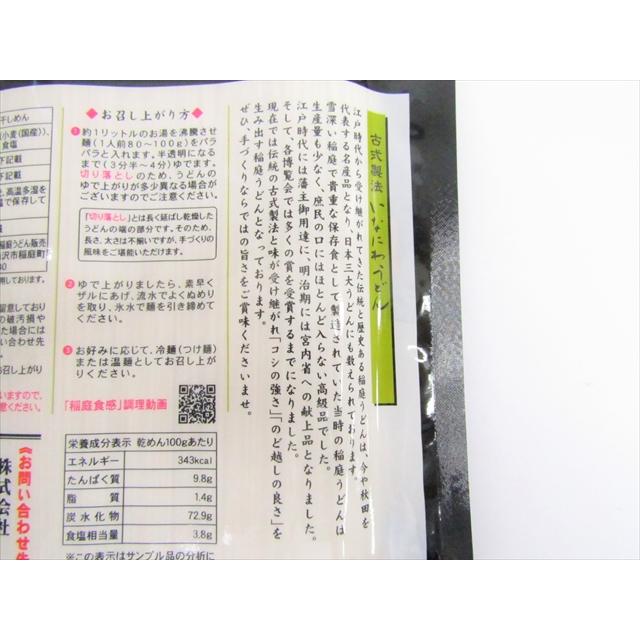 古式製法 いなにわうどん
江戸時代から受け継がれてきた伝統と歴史ある稲庭うどんは、今や秋田を
代表する名産品となり、日本三大うどんにも数えられております。
雪深い稲庭で貴重な保存食として製造されていた当時の稲庭うどんは
生産量も少なく、庶民の口にはほとんど入らない高級品でした。
江戸時代には藩主御用達に、明治期には宮内省への献上品となりました。
そして、各博覧会では多くの賞を受賞するまでになりました。
現在では伝統の古式製法と味が受け継がれ「コシの強さ」「のど越しの良さ」を
生み出す稲庭うどんとなっております。
ぜひ、手づくりならではの旨さをご賞味くださいませ。
◆お召し上がり方◆
1 約1リットルのお湯を沸騰させ
麺(1人前80〜100g)をバラ
バラと入れます。半透明になる
まで(3分半〜4分)ゆでます。
切り落としのため、うどんの
ゆで上がりが多少異なる場合が
ございますのでご注意ください。
「切り落とし」とは長く延ばし乾燥した
うどんの端の部分です。そのため、
長さ、太さは不揃いですが、手づくりの
風味をご堪能いただけます。
2 ゆで上がりましたら、素早く
ザルにあげ、流水でよくぬめり
を取り、氷水で麺を引き締めて
ください。
3 お好みに応じて、冷麺(つけ麺)
または温麺としてお召し上が
りください。
「稲庭食感」調理動画
栄養成分表示 乾めん100gあたり
エネルギー 343kcal
たんぱく質 9.8g
脂質 1.4g
炭水化物 72.9g
食塩相当量 3.8g
※この表示はサンプル品の分析に
干しめん
小麦(国産)、
食塩
下記載
下記載
、高温多湿を
で保存して
稲庭うどん販売
沢市稲庭町
80
用しております。
留意しており
の破汚損や
た場合には
い合わせ先
お召し上がり
ますので、
意ください。
《お問い合わせ先
株式会社